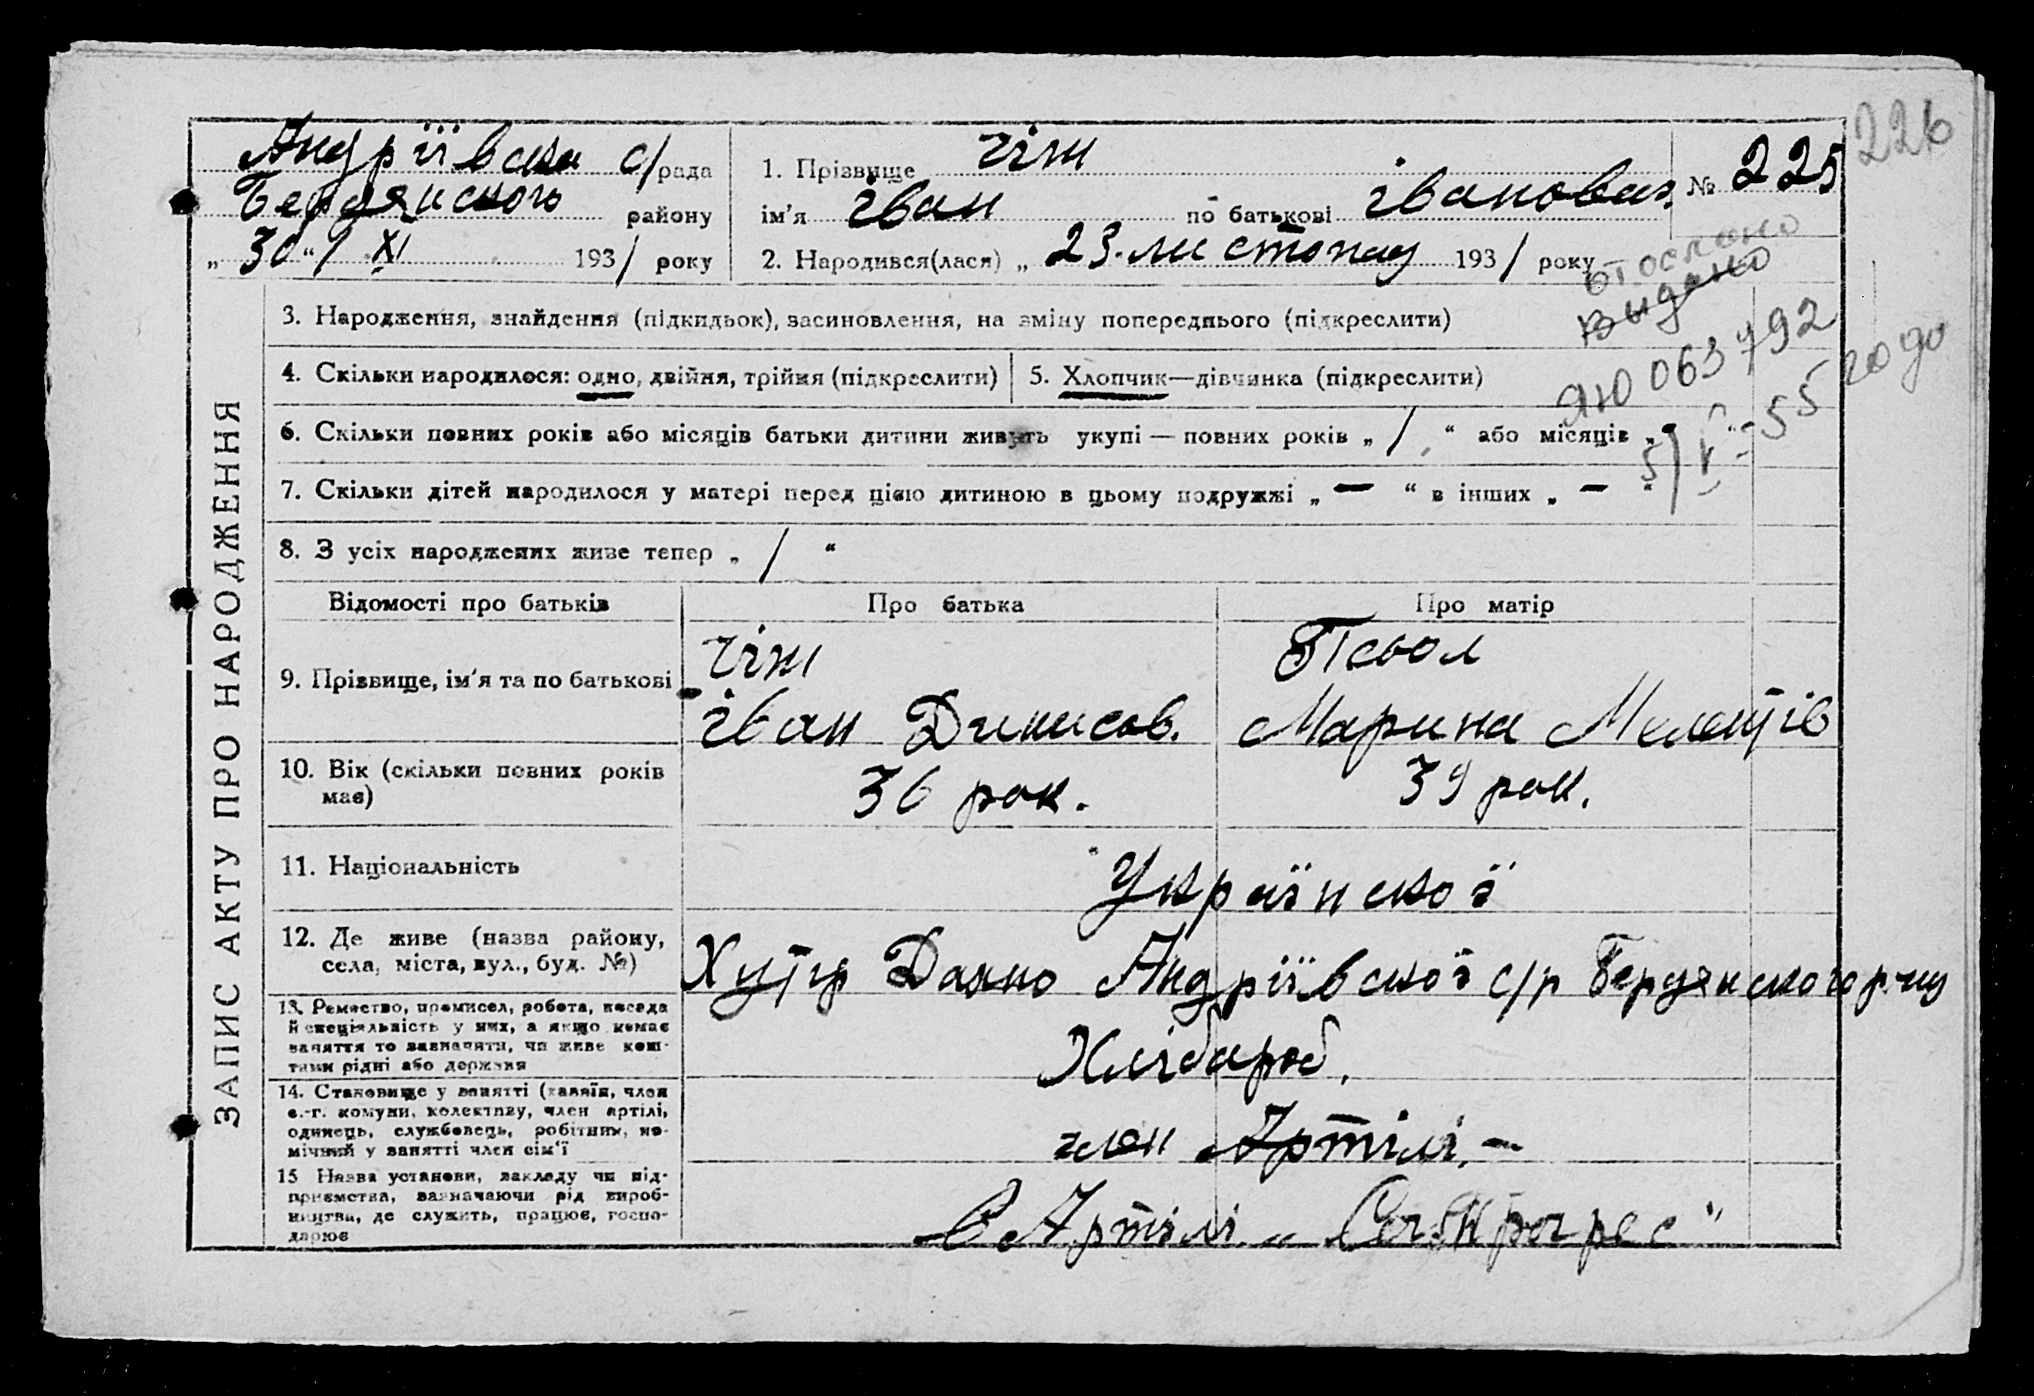 226
Андріївська с/рада
Бердянського району
„30“ / XI 1931 року
1. Прізвище Чіж
ім’я Іван по батькові Іванович
№ 225
2. Народився(лася) „23. листопад 1931 року
отослано
выдано
ЯЮ 063792
5/V-55 году
ЗАПИС АКТУ ПРО НАРОДЖЕННЯ
3. Народження, знайдення (підкидьок), засиновлення, на зміну попереднього (підкреслити)
4. Скільки народилося: одно, двійня, трійня (підкреслити)
5. Хлопчик—дівчинка (підкреслити)
6. Скільки повних років або місяців батьки дитини живуть укупі — повних років „ 1 “ або місяців „ - “
7. Скільки дітей народилося у матері перед цією дитиною в цьому подружжі „ — “ в інших „ — “
8. З усіх народжених живе тепер „ 1 “
Відомості про батьків Про батька Про матір
9. Прізвище, ім’я та по батькові
Чіж
Іван Динисов.
Псьол
Марина
10. Вік (скільки повних років має)
36 рок.
39 рок.
11. Національність
Української
12. Де живе (назва району, села, міста, вул., буд. №)
Хутір Андріївської с/р Бердянського р-ну
13. Ремество, промисел, робота, посада
й спеціяльність у них, а якщо немає
заняття то зазначити, чи живе кош-
тами рідні або держави
Хлібороб.
14. Становище у занятті (хазяїн, член
с.-г. комуни, колективу, член артілі,
одинець, службовець, робітник, по-
мічний у занятті член сім’ї
член Артілі. —
15 Назва установи, закладу чи під-
приємства, зазначаючи рід вироб-
ництва, де служить, працює, госпо-
дарює
В Артілі „